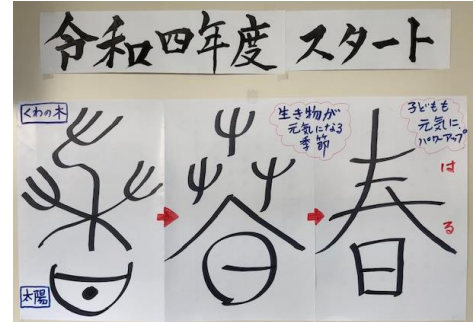 令和四年度 スタート
くわの木
太陽
生き物が
元気になる
季節
子どもも
元気に
パワーアップ
春
はる